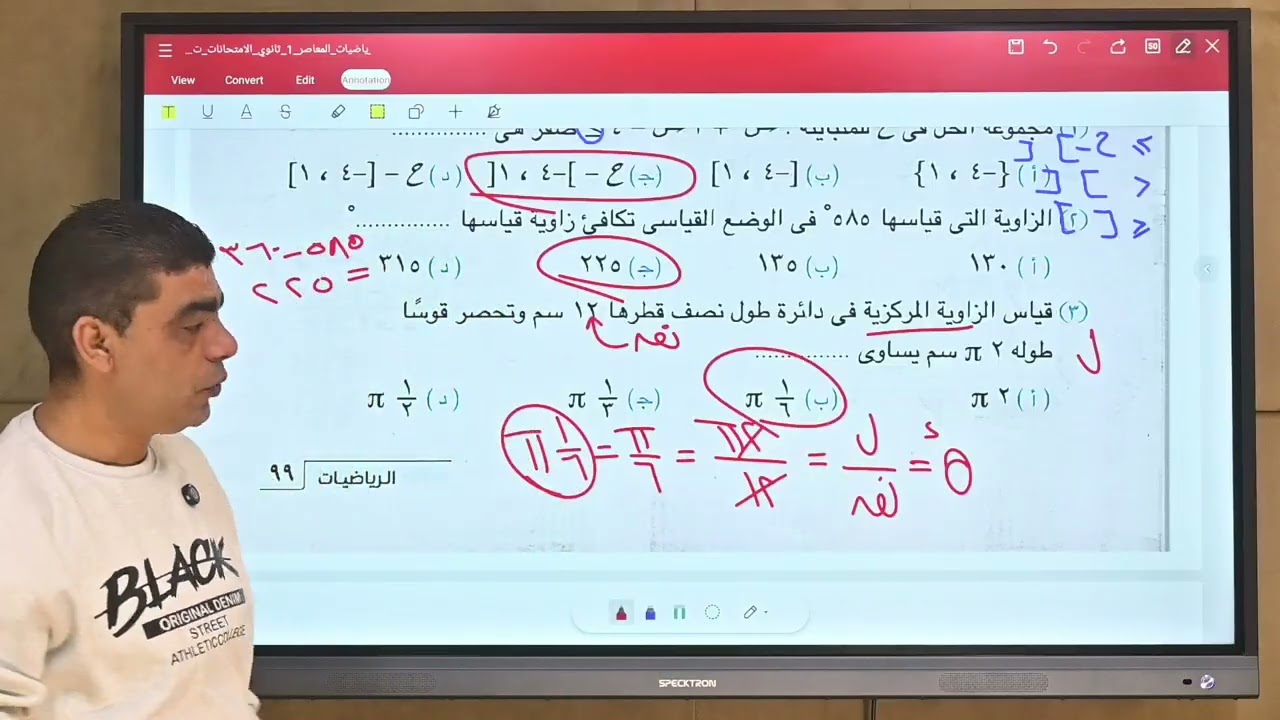 رياضيات_المعاصر_1_ثانوي_الامتحانات_ت...
View Convert Edit Annotation
(١) مجموعة الحل فى ح للمتباينة :
صفر هى ..............
(أ) {-٤ ، ١} (ب) [-٤ ، ١] (جـ) ح - ]-٤ ، ١[ (د) ح - [-٤ ، ١]
≥ ح - ] [
> ] [
≤ ] [
(٢) الزاوية التى قياسها ٥٨٥° فى الوضع القياسى تكافئ زاوية قياسها ..............°
(أ) ١٣٠ (ب) ١٣٥ (جـ) ٢٢٥ (د) ٣١٥
٥٨٥ - ٣٦٠
= ٢٢٥
(٣) قياس الزاوية المركزية فى دائرة طول نصف قطرها ١٢ سم وتحصر قوسًا
نق
طوله ٢ π سم يساوى ..............
ل
(أ) ٢ π (ب) ١/٦ π (جـ) ١/٣ π (د) ١/٢ π
θء = ل/نق = ٢π/١٢ = π/٦ = ١/٦ π
الرياضيات ٩٩
BLACK
ORIGINAL DENIM
STREET
ATHLETIC COLLEGE
SPECKTRON